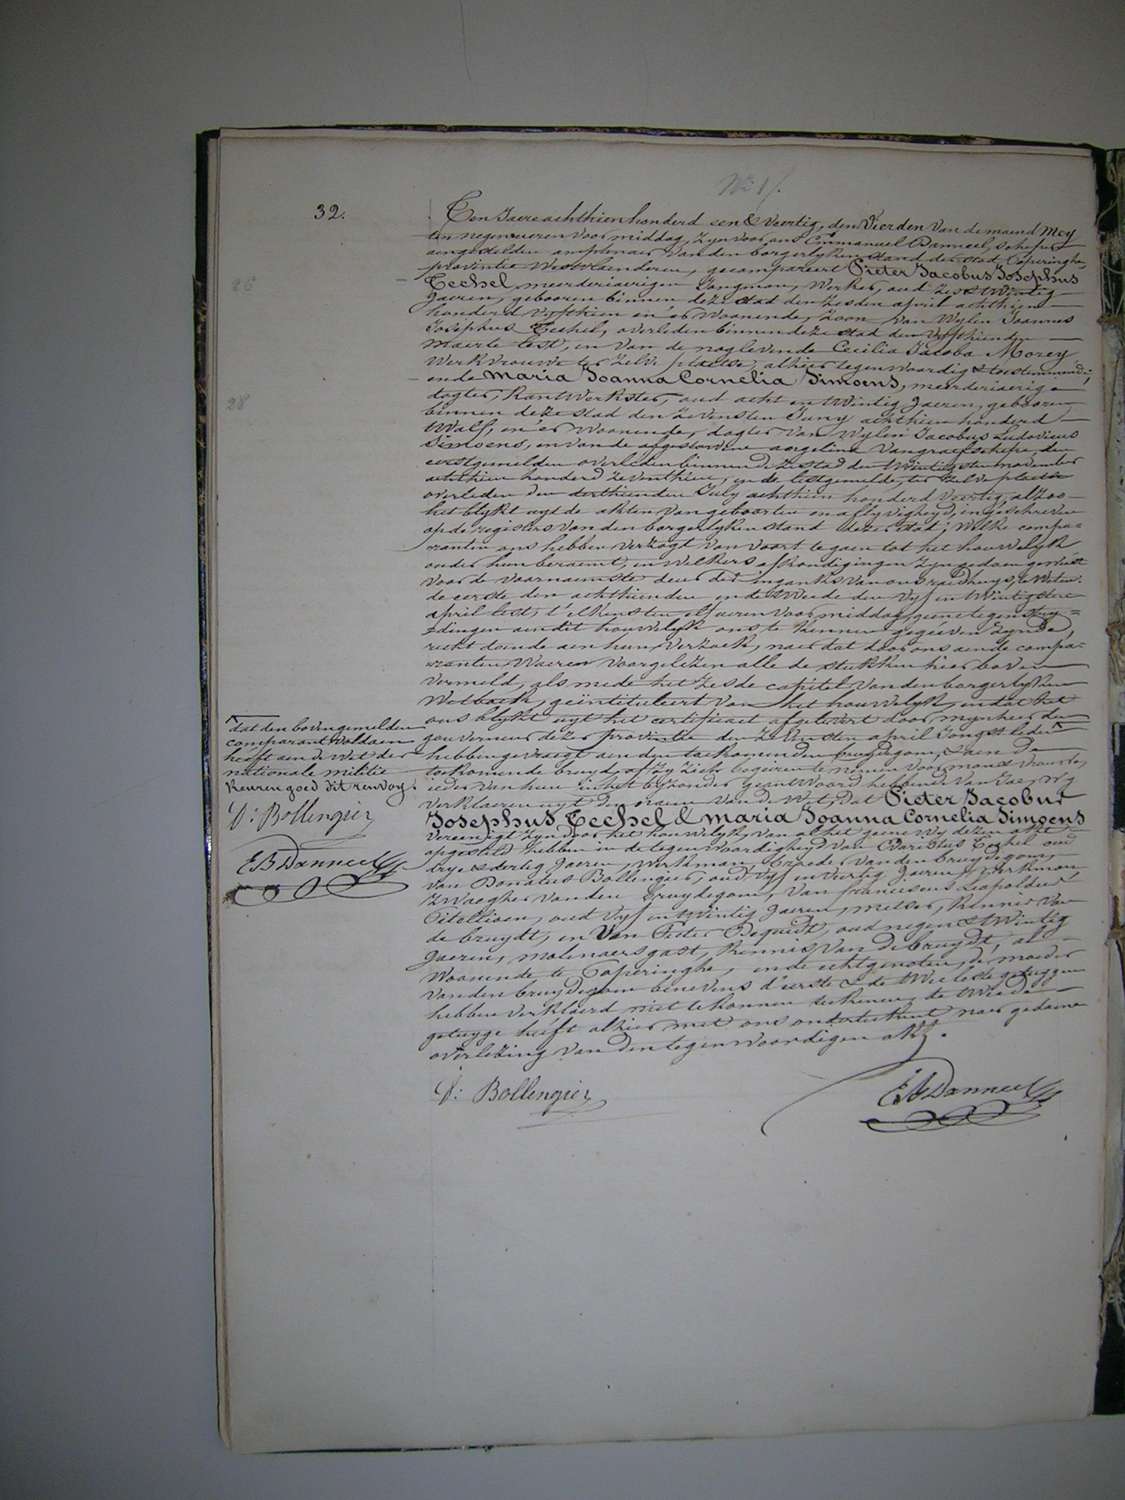 No 17.
32.
Ten Jaere achthien honderd een & Veertig, den Vierden Van de maend Mey
ten negen ueren Voor middag, Zyn voor ons Emmanuel Danneel, schepen
aengestelden amptenaer Van den borgerlyken stand der stad Poperinghe,
provintie Westvlaenderen, gecompareert Pieter Jacobus Josephus
26
Techel, meerderjaerigen Jongman, Werker, oud Zes & Twintig
Jaeren, gebooren binnen deze stad den Zesden april achthien
honderd Vyfthien en er Woonende, Zoon Van Wylen Joannes
Josephus Techel, overleden binnen deze stad den Vyfthienden
Maerte lest, en Van de nog levende Cecilia Jacoba Morey
Werkvrouwe ter Zelve plaetse, alhier tegenwoordig & toestemmende;
ende Maria Joanna Cornelia Simoens, meerderjaerige
28
dogter, Kantwerkster, oud acht en Twintig Jaeren, gebooren
binnen deze stad den Zevensten Juny achthien honderd
Twalf, en er Woonende, dogter Van Wylen Jacobus Ludovicus
Simoens, en Van de afgestorven angelina Vangraefschepe, den
eerstgemelden overleden binnen deze stad den Twintigsten november
achthien honderd Zeventhien, en de lestgemelde, ter Zelve plaetse
overleden den derthienden July achthien honderd Veertig, alzoo
het blykt uyt de akten Van geboorten en aflyvigheyd, ingeschreven
op de registers Van den borgerlyken stand dezer stad; Welke compa-
ranten ons hebben Verzogt Van Voort te gaen tot het houwelyk
onder hun beraemt, en Welkers afkondigingen Zyn gedaen geweest
Voor de Voornaemste deur der ingank Van ons raedhuys, te Weten
de eerste den achthienden en de Tweede den Vyf en Twintigsten
april lest, t'elkensten elf ueren Voor middag, geene tegenstry-
=digen aen dit houwelyk ons te kennen gegeeven Zynde,
recht doende aen hun Verzoek, naer dat door ons aen de compa-
ranten Waeren Voorgelezen alle de stukken hier boven
Vermeld, als mede het Zesde capitel Van den borgerlyken
Wetboek, geïntituleert Van het houwelyk, en dat het
ons blykt uyt het certificaet afgelevert door mynheer den
gouverneur dezer provintie den Zevensten april Jongst leden
dat den bovengemelden
comparant Voldaen
heeft aen de Wet der
nationale militie
Keuren goed dit renvoy.
D: Bollengier
E B Danneel
hebben gevraegt aen den toekomenden bruydegom, & aen de
toekomende bruyd, of Zy Zich begeiren te nemen Voor man & Vrouwe,
ieder Van hun in het byzonder geantwoord hebbende Van Jae, Wy
Verklaeren uyt den naem Van de Wet, dat Pieter Jacobus
Josephus Techel & Maria Joanna Cornelia Simoens
Vereenigt Zyn door het houwelyk, Van al het geene Wy dezen akt
opgesteld hebben in de tegenwoordigheyd Van Charolus Techel oud
drye & dertig Jaeren, Werkman, broeder Van den bruydegom,
Van Donatus Bollengier, oud Vyf en Veertig Jaeren, Werkman
Zwaegher Van den bruydegom, Van franciscus Leopoldus
Titellioen, oud Vyf en Twintig Jaeren, metser, Kennis Van
de bruydt, en Van Pieter Dequidt, oud negen & Twintig
Jaeren, molenaersgast, Kennis Van de bruydt, al
Woonende te Poperinghe, ende echtgenoten, de moeder
Van den bruydegom benevens d'eerste & de twee leste getuygen
hebben Verklaerd niet te konnen teekenen, de Tweede
getuyge heeft alhier met ons onderteekent naer gedaene
overlezing Van den tegenwoordigen akt.
D: Bollengier
E B Danneel